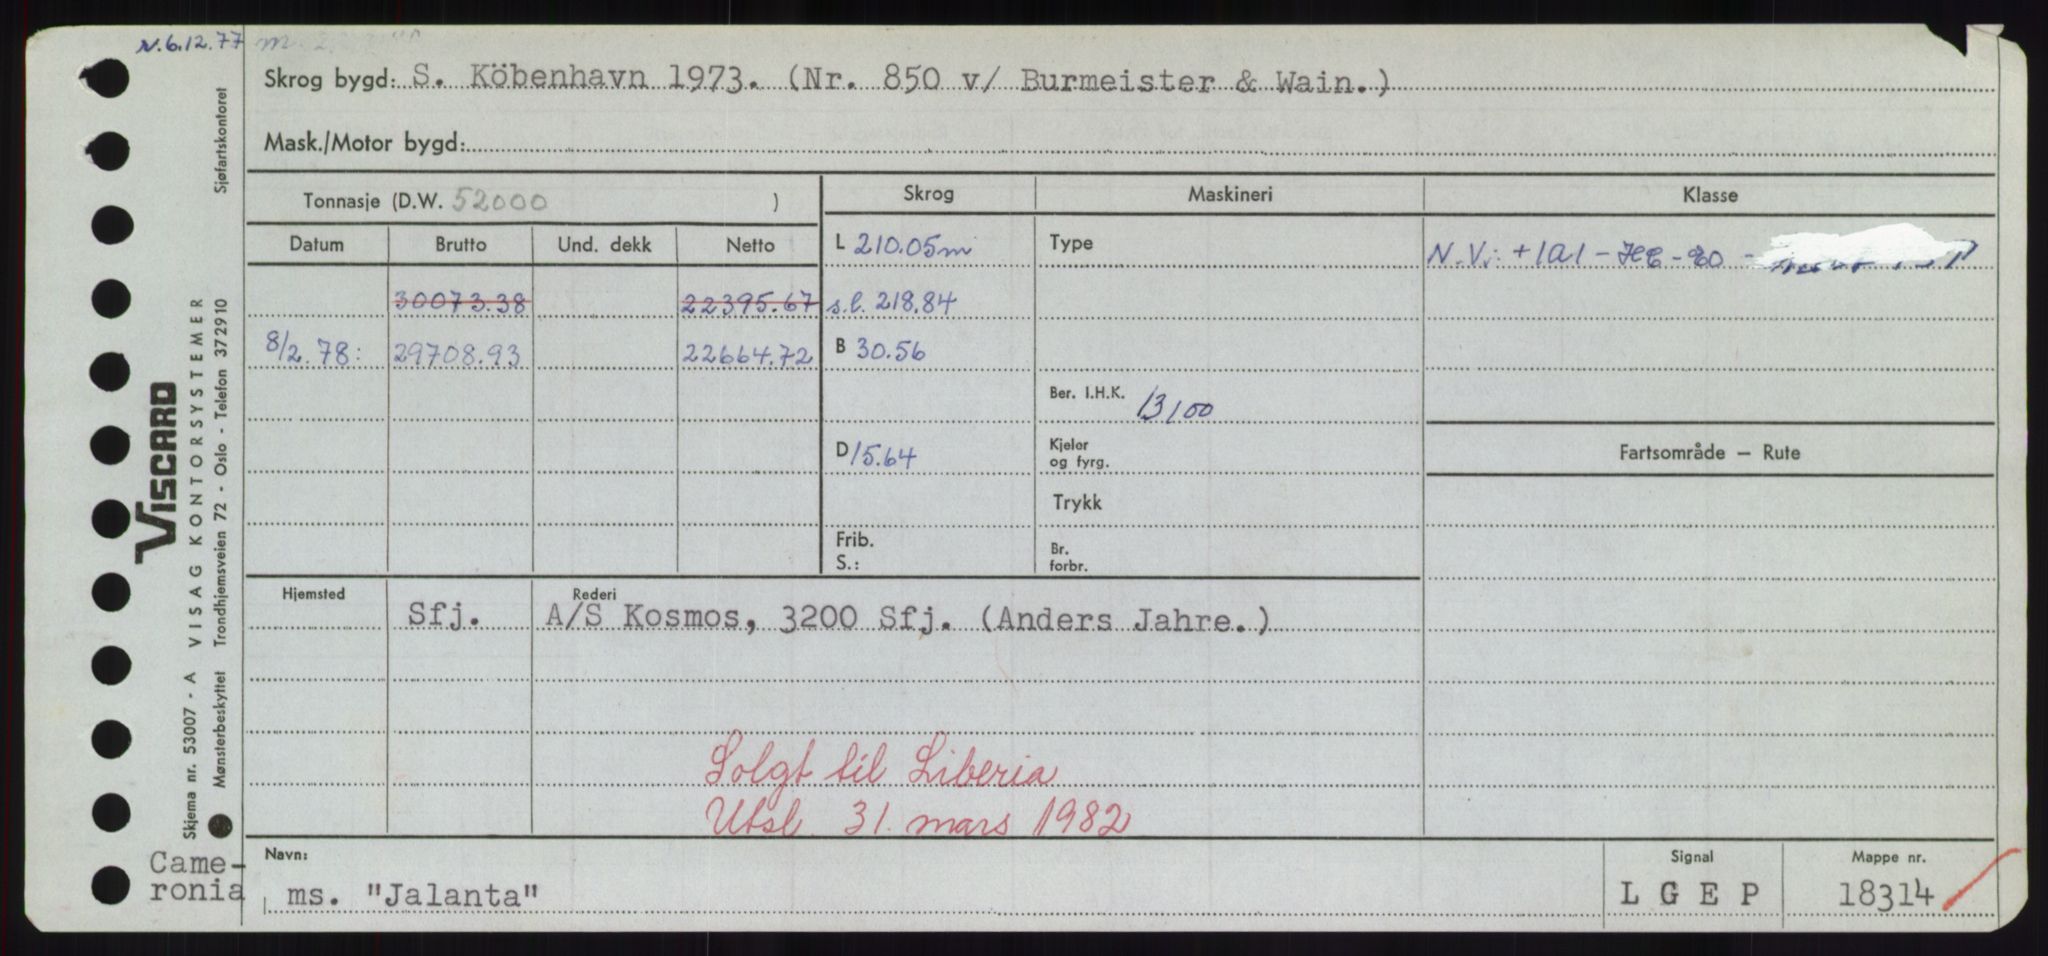 N. 6.12.77
Skrog bygd: S. Köbenhavn 1973. (Nr. 850 v/ Burmeister & Wain.)
Mask./Motor bygd:
Tonnasje (D.W. 52000 )
Skrog
Maskineri
Klasse
Datum
Brutto
Und. dekk
Netto
L 210.05m
Type
N.V.: +1A1 - HC - E0 -
30073.38
22395.67
s.l. 218.84
8/2.78:
29708.93
22664.72
B 30.56
Ber. I.H.K. 13100
D 15.64
Kjeler
og fyrg.
Fartsområde – Rute
Trykk
Frib.
S.:
Br.
forbr.
Hjemsted
Sfj.
Rederi
A/S Kosmos, 3200 Sfj. (Anders Jahre.)
Solgt til Liberia
Utsl. 31. mars 1982
Came-
ronia
Navn:
ms. "Jalanta"
Signal
L G E P
Mappe nr.
18314
VISCARD
Skjema nr. 53007 - A VISAG KONTORSYSTEMER
Mønsterbeskyttet Trondhjemsveien 72 - Oslo - Telefon 372910 Sjøfartskontoret